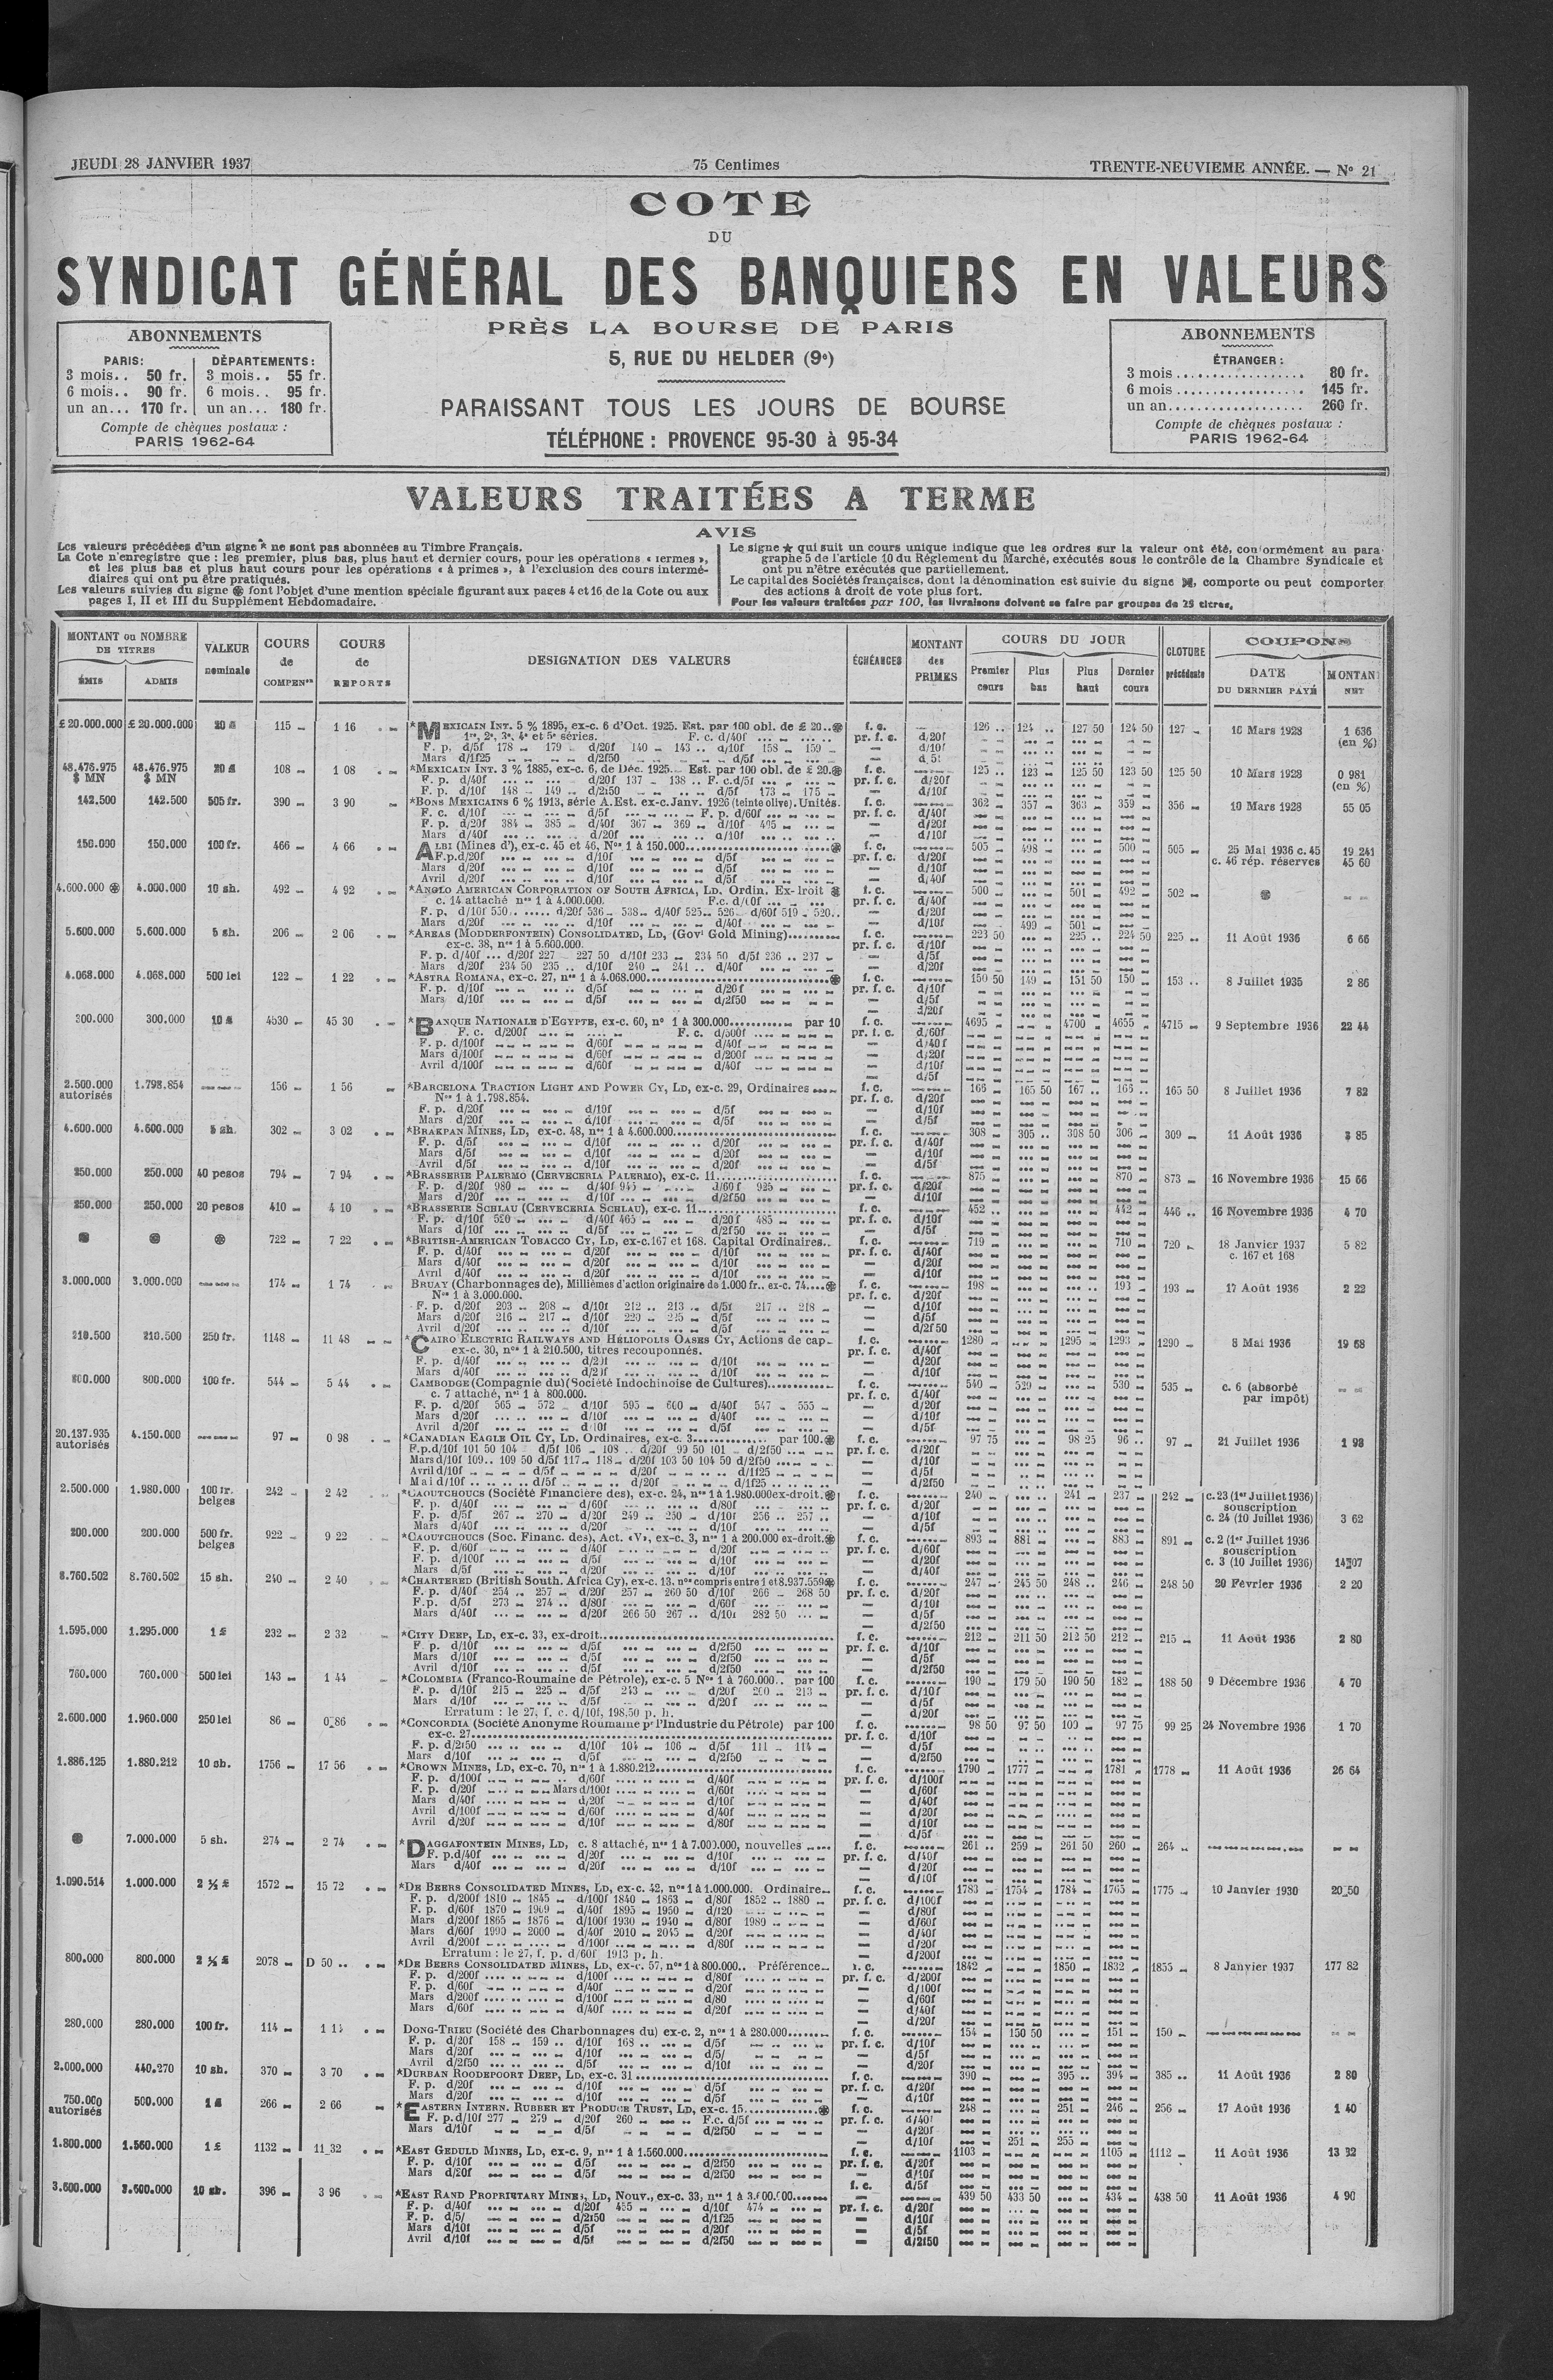 JEUDI 28 JANVIER 1937
75 Centimes
TRENTE-NEUVIEME ANNÉE. — N° 21
COTE
DU
SYNDICAT GÉNÉRAL DES BANQUIERS EN VALEURS
PRÈS LA BOURSE DE PARIS
5, RUE DU HELDER (9e)
PARAISSANT TOUS LES JOURS DE BOURSE
TÉLÉPHONE : PROVENCE 95-30 à 95-34
ABONNEMENTS
PARIS: DÉPARTEMENTS :
3 mois.. 50 fr. 3 mois.. 55 fr.
6 mois.. 90 fr. 6 mois.. 95 fr.
un an... 170 fr. un an... 180 fr.
Compte de chèques postaux :
PARIS 1962-64
ABONNEMENTS
ÉTRANGER :
3 mois 80 fr.
6 mois 145 fr.
un an 260 fr.
Compte de chèques postaux :
PARIS 1962-64
VALEURS TRAITÉES A TERME
AVIS
Les valeurs précédées d'un signe * ne sont pas abonnées au Timbre Français.
La Cote n'enregistre que : les premier, plus bas, plus haut et dernier cours, pour les opérations « termes »,
et les plus bas et plus haut cours pour les opérations « à primes », à l'exclusion des cours intermé-
diaires qui ont pu être pratiqués.
Les valeurs suivies du signe ⊛ font l'objet d'une mention spéciale figurant aux pages 4 et 16 de la Cote ou aux
pages I, II et III du Supplément Hebdomadaire.
Le signe ★ qui suit un cours unique indique que les ordres sur la valeur ont été, conformément au para-
graphe 5 de l'article 10 du Règlement du Marché, exécutés sous le contrôle de la Chambre Syndicale et
ont pu n'être exécutés que partiellement.
Le capital des Sociétés françaises, dont la dénomination est suivie du signe, comporte ou peut comporter
des actions à droit de vote plus fort.
Pour les valeurs traitées par 100, les livraisons doivent se faire par groupes de 25 titres.
MONTANT ou NOMBRE DE TITRES
ÉMIS ADMIS
VALEUR nominale
COURS de COMPENon
COURS de REPORTS
DESIGNATION DES VALEURS
ÉCHÉANCES
MONTANT des PRIMES
COURS DU JOUR
Premier cours Plus bas Plus haut Dernier cours
CLOTURE précédente
COUPONS
DATE DU DERNIER PAYÉ
MONTANT NET
£ 20.000.000 £ 20.000.000 20 £ 115 1 16 *MEXICAIN INT. 5 % 1895, ex-c. 6 d'Oct. 1925. Est. par 100 obl. de £ 20..⊛ f. c. 126 .. 124 .. 127 50 124 50 127 1 636
1re, 2e, 3e, 4e et 5e séries. F. c. d/40f pr. f. c. d/20f (en %)
F. p. d/5f 178 179 d/20f 140 143 .. d/10f 158 159 d/10f
Mars d/1f25 d/2f50 d/5f
48.476.975 $ MN 48.476.975 $ MN 20 £ 108 1 08 *MEXICAIN INT. 3 % 1885, ex-c. 6, de Déc. 1925. Est. par 100 obl. de £ 20.⊛ f. c. 125 .. 123 125 50 123 50 125 50 10 Mars 1928 0 981
F. p. d/40f d/20f 137 138 .. F. c. d/5f pr. f. c. d/20f (en %)
F. p. d/10f 148 149 d/2f50 d/5f 173 175 d/10f
142.500 142.500 505 fr. 390 3 90 *BONS MEXICAINS 6 % 1913, série A. Est. ex-c. Janv. 1926 (teinte olive). Unités. f. c. 362 357 363 359 356 10 Mars 1928 55 05
F. c. d/10f d/5f F. p. d/60f pr. f. c. d/40f
F. p. d/20f 384 385 d/40f 367 369 d/10f d/20f
Mars d/40f d/20f d/10f d/10f
150.000 150.000 100 fr. 466 4 66 ALBI (Mines d'), ex-c. 45 et 46, Nos 1 à 150.000 ⊛ f. c. 505 498 500 505 25 Mai 1936 c. 45 19 241
F. p. d/20f d/10f d/5f pr. f. c. d/20f c. 46 rép. réserves 45 60
Mars d/20f d/10f d/5f d/10f
Avril d/20f d/10f d/5f d/40f
4.600.000 ⊛ 4.000.000 10 sh. 492 4 92 *ANGLO AMERICAN CORPORATION OF SOUTH AFRICA, LD. Ordin. Ex-droit ⊛ f. c. 500 501 492 502 ⊛
c. 14 attaché nos 1 à 4.000.000. pr. f. c. d/40f
F. p. d/10f 550.. d/20f 536 538 d/40f 525 526 d/60f 519 520.. d/20f
Mars d/20f d/10f d/40f d/10f 499 501
5.600.000 5.600.000 5 sh. 206 2 06 *AREAS (MODDERFONTEIN) CONSOLIDATED, LD, (Govt Gold Mining) f. c. 223 50 225 .. 224 50 225 .. 11 Août 1936 6 66
ex-c. 38, nos 1 à 5.600.000. pr. f. c. d/10f
F. p. d/40f ... d/20f 227 227 50 d/10f 233 234 50 d/5f 236 .. 237 d/5f
Mars d/20f 234 50 235 .. d/10f 240 241 .. d/40f d/20f
4.068.000 4.068.000 500 lei 122 1 22 *ASTRA ROMANA, ex-c. 27, nos 1 à 4.068.000 ⊛ f. c. 150 50 149 151 50 150 153 .. 8 Juillet 1935 2 86
F. p. d/10f d/5f d/20f pr. f. c. d/10f
Mars d/10f d/5f d/2f50 d/5f
300.000 10 £ 4530 45 30 *BANQUE NATIONALE D'EGYPTE, ex-c. 60, n° 1 à 300.000 par 10 f. c. 4695 4700 4655 4715 9 Septembre 1936 22 44
F. c. d/200f F. c. pr. f. c. d/60f
F. p. d/100f d/60f d/40f d/40f
Mars d/100f d/60f d/200f d/20f
Avril d/100f d/60f d/40f d/10f
d/5f
2.500.000 autorisés 1.798.854 156 1 56 *BARCELONA TRACTION LIGHT AND POWER CY, LD, ex-c. 29, Ordinaires f. c. 166 165 50 167 .. 165 50 8 Juillet 1936 7 82
Nos 1 à 1.798.854. pr. f. c. d/20f
F. p. d/20f d/10f d/5f d/10f
Mars d/20f d/10f d/5f d/5f
4.600.000 4.600.000 5 sh. 302 3 02 *BRAKPAN MINES, LD, ex-c. 48, nos 1 à 4.600.000 f. c. 308 305 .. 308 50 306 309 11 Août 1936 3 85
F. p. d/5f d/10f d/20f pr. f. c. d/40f
Mars d/5f d/10f d/20f d/10f
Avril d/5f d/10f d/20f d/5f
250.000 250.000 40 pesos 794 7 94 *BRASSERIE PALERMO (CERVECERIA PALERMO), ex-c. 11 f. c. 875 870 873 16 Novembre 1936 15 66
F. p. d/20f 980 d/40f 945 d/60f 925 pr. f. c. d/20f
Mars d/20f d/10f d/2f50 d/10f
250.000 250.000 20 pesos 410 4 10 *BRASSERIE SCHLAU (CERVECERIA SCHLAU), ex-c. 11 f. c. 452 .. 442 446 .. 16 Novembre 1936 4 70
F. p. d/10f 520 d/40f 465 d/20f 485 pr. f. c. d/10f
Mars d/10f d/5f d/2f50 d/5f
⊛ ⊛ ⊛ 722 7 22 *BRITISH-AMERICAN TOBACCO CY, LD, ex-c. 167 et 168. Capital Ordinaires.. f. c. 719 710 720 18 Janvier 1937 5 82
F. p. d/40f d/20f d/10f pr. f. c. d/40f c. 167 et 168
Mars d/40f d/20f d/10f d/20f
Avril d/40f d/20f d/10f d/10f
3.000.000 3.000.000 174 1 74 BRUAY (Charbonnages de), Millièmes d'action originaire de 1.000 fr.. ex-c. 74....⊛ f. c. 198 193 193 17 Août 1936 2 22
Nos 1 à 3.000.000. pr. f. c. d/20f
F. p. d/20f 203 .. 208 d/10f 212 .. 213 d/5f 217 .. 218 d/10f
Mars d/20f 216 217 d/10f 220 225 d/5f d/5f
Avril d/20f d/10f d/5f d/2f50
210.500 210.500 250 fr. 1148 11 48 *CAIRO ELECTRIC RAILWAYS AND HÉLIOPOLIS OASES CY, Actions de cap. f. c. 1280 1295 1293 1290 8 Mai 1936 19 68
ex-c. 30, nos 1 à 210.500, titres recouponnés. pr. f. c. d/40f
F. p. d/40f d/20f d/10f d/20f
Mars d/40f d/20f d/10f d/10f
800.000 800.000 100 fr. 544 5 44 CAMBODGE (Compagnie du) (Société Indochinoise de Cultures) f. c. 540 529 530 535 c. 6 (absorbé
c. 7 attaché, nos 1 à 800.000. pr. f. c. d/40f par impôt)
F. p. d/20f 565 572 d/10f 595 600 d/40f 547 555 d/20f
Mars d/20f d/10f d/40f d/10f
Avril d/20f d/10f d/5f d/5f
20.137.935 autorisés 4.150.000 97 0 98 *CANADIAN EAGLE OIL CY, LD. Ordinaires, ex-c. 3 par 100.⊛ f. c. 97 75 98 25 96 .. 97 21 Juillet 1936 1 98
F.p. d/10f 101 50 104 d/5f 106 108 .. d/20f 99 50 101 d/2f50 pr. f. c. d/20f
Mars d/10f 109.. 109 50 d/5f 117 118 d/20f 103 50 104 50 d/2f50 d/10f
Avril d/10f d/5f d/20f d/1f25 d/5f
Mai d/10f d/5f d/20f d/1f25 d/2f50
2.500.000 1.980.000 100 fr. belges 242 2 42 *CAOUTCHOUCS (Société Financière des), ex-c. 24, nos 1 à 1.980.000 ex-droit.⊛ f. c. 240 241 237 242 c. 23 (1er Juillet 1936)
F. p. d/40f d/60f d/80f pr. f. c. d/20f souscription
F. p. d/5f 267 270 d/20f 249 .. 250 d/10f 256 .. 257 .. d/10f c. 24 (10 Juillet 1936) 3 62
Mars d/40f d/20f d/10f d/5f
200.000 200.000 500 fr. belges 922 9 22 *CAOUTCHOUCS (Soc. Financ. des), Act. «V», ex-c. 3, nos 1 à 200.000 ex-droit.⊛ f. c. 893 881 883 891 c. 2 (1er Juillet 1936
F. p. d/60f d/40f d/20f pr. f. c. d/60f souscription
F. p. d/100f d/5f d/10f d/20f c. 3 (10 Juillet 1936) 14 07
Mars d/5f d/20f d/10f d/40f
8.760.502 8.760.502 15 sh. 240 2 40 *CHARTERED (British South. Africa Cy), ex-c. 13. nos compris entre 1 et 8.937.559⊛ f. c. 247 245 50 248 .. 246 248 50 20 Février 1936 2 20
F. p. d/40f 254 .. 257 d/20f 257 260 50 d/10f 266 268 50 pr. f. c. d/20f
F.p. d/5f 273 274 .. d/80f d/60f d/10f
Mars d/40f d/20f 266 50 267 .. d/10f 282 50 d/5f
d/2f50
1.595.000 1.295.000 1 £ 232 2 32 *CITY DEEP, LD, ex-c. 33, ex-droit f. c. 212 211 50 212 50 212 215 11 Août 1936 2 80
F. p. d/10f d/5f d/2f50 pr. f. c. d/10f
Mars d/10f d/5f d/2f50 d/5f
Avril d/10f d/5f d/2f50 d/2f50
760.000 760.000 500 lei 143 1 44 *COLOMBIA (Franco-Roumaine de Pétrole), ex-c. 5 Nos 1 à 760.000.. par 100 f. c. 190 179 50 190 50 182 188 50 9 Décembre 1936 4 70
F. p. d/10f 215 225 d/5f 243 d/20f 200 213 pr. f. c. d/10f
Mars d/10f d/5f d/20f d/5f
Erratum : le 27, f. c. d/10f, 198.50 p. h. d/20f
2.600.000 1.960.000 250 lei 86 0 86 *CONCORDIA (Société Anonyme Roumaine pr l'Industrie du Pétrole) par 100 f. c. 98 50 97 50 100 97 75 99 25 24 Novembre 1936 1 70
ex-c. 27 pr. f. c. d/10f
F. p. d/2f50 d/10f 104 106 d/5f 111 114 d/5f
Mars d/10f d/5f d/2f50 d/2f50
1.886.125 1.880.212 10 sh. 1756 17 56 *CROWN MINES, LD, ex-c. 70, nos 1 à 1.880.212 f. c. 1790 1777 1781 1778 11 Août 1936 26 64
F. p. d/100f d/60f d/40f pr. f. c. d/100f
F. p. d/20f Mars d/100f d/60f d/60f
Mars d/40f d/20f d/10f d/40f
Avril d/100f d/60f d/40f d/20f
Avril d/20f d/10f d/80f d/10f
d/5f
⊛ 7.000.000 5 sh. 274 2 74 *DAGGAFONTEIN MINES, LD, c. 8 attaché, nos 1 à 7.000.000, nouvelles f. c. 261 .. 259 261 50 260 264
F. p. d/40f d/20f d/10f pr. f. c. d/40f
Mars d/40f d/20f d/10f d/20f
d/10f
1.090.514 1.000.000 2 ½ £ 1572 15 72 *DE BEERS CONSOLIDATED MINES, LD, ex-c. 42, nos 1 à 1.000.000. Ordinaire f. c. 1783 1754 1784 1765 1775 10 Janvier 1930 20 50
F. p. d/200f 1810 1845 d/100f 1840 1863 d/80f 1852 1880 pr. f. c. d/100f
F. p. d/60f 1870 1909 d/40f 1895 1950 d/120 d/80f
Mars d/200f 1865 1876 d/100f 1930 1940 d/80f 1980 d/60f
Mars d/60f 1990 2000 d/40f 2010 2045 d/20f d/40f
Avril d/200f d/100f d/80f d/20f
Erratum : le 27, f. p. d/60f 1913 p. h. d/200f
800.000 800.000 2 ½ £ 2078 D 50 .. *DE BEERS CONSOLIDATED MINES, LD, ex-c. 57, nos 1 à 800.000.. Préférence f. c. 1842 1850 1832 1855 8 Janvier 1937 177 82
F. p. d/200f d/100f d/80f pr. f. c. d/200f
F. p. d/60f d/40f d/20f d/100f
Mars d/200f d/100f d/80 d/60f
Mars d/60f d/40f d/20f d/40f
d/20f
280.000 280.000 100 fr. 114 DONG-TRIEU (Société des Charbonnages du) ex-c. 2, nos 1 à 280.000 f. c. 154 150 50 151 150
F. p. d/20f 158 159 .. d/10f 168 .. d/5f pr. f. c. d/10f
Mars d/20f d/10f d/5f d/5f
Avril d/2f50 d/5f d/10f d/20f
2.000.000 440.270 10 sh. 370 3 70 *DURBAN ROODEPOORT DEEP, LD, ex-c. 31 f. c. 390 395 .. 394 385 .. 11 Août 1936 2 80
F. p. d/20f d/10f d/5f pr. f. c. d/20f
Mars d/20f d/10f d/5f d/10f
750.000 autorisés 500.000 1 £ 266 2 66 *EASTERN INTERN. RUBBER ET PRODUCE TRUST, LD, ex-c. 15 ⊛ f. c. 248 251 246 256 17 Août 1936 1 40
F. p. d/10f 277 279 d/20f 260 F.c. d/5f pr. f. c. d/40f
Mars d/10f d/5f d/2f50 d/20f
d/10f 251 255
1.800.000 1.560.000 1 £ 1132 11 32 *EAST GEDULD MINES, LD, ex-c. 9, nos 1 à 1.560.000 f. c. 1103 1105 1112 11 Août 1936 13 32
F. p. d/10f d/5f d/2f50 pr. f. c. d/20f
Mars d/20f d/5f d/2f50 d/10f
3.600.000 3.600.000 10 sh. 396 3 96 *EAST RAND PROPRIETARY MINES, LD, Nouv., ex-c. 33, nos 1 à 3.600.000 f. c. d/5f 439 50 433 50 434 438 50 11 Août 1936 4 90
F. p. d/40f d/20f 455 d/10f 474 pr. f. c. d/20f
F. p. d/5f d/2f50 d/1f25 d/10f
Mars d/10f d/5f d/20f d/5f
Avril d/10f d/5f d/2f50 d/2f50